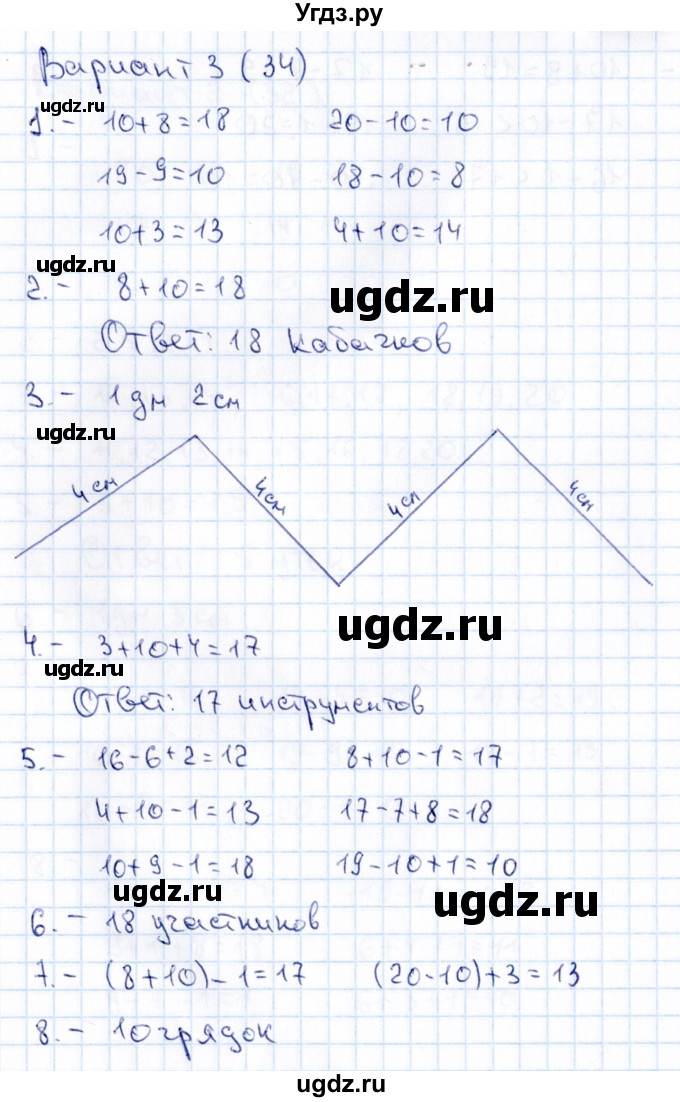 Угдз.ру
Вариант 3 (34)
ugdz.ru
1.- 10+8=18 20-10=10
19-9=10 18-10=8
10+3=13 4+10=14
ugdz.ru
2.- 8+10=18 ugdz.ru
Ответ: 18 кабачков
3.- 1 дм 2 см
ugdz.ru
4 см 4 см 4 см 4 см
ugdz.ru
4.- 3+10+4=17
ugdz.ru
Ответ: 17 инструментов
5.- 16-6+2=12 8+10-1=17
4+10-1=13 17-7+8=18
10+9-1=18 19-10+1=10
ugdz.ru ugdz.ru
6.- 18 участников
7.- (8+10)-1=17 (20-10)+3=13
8.- 10 грядок
ugdz.ru